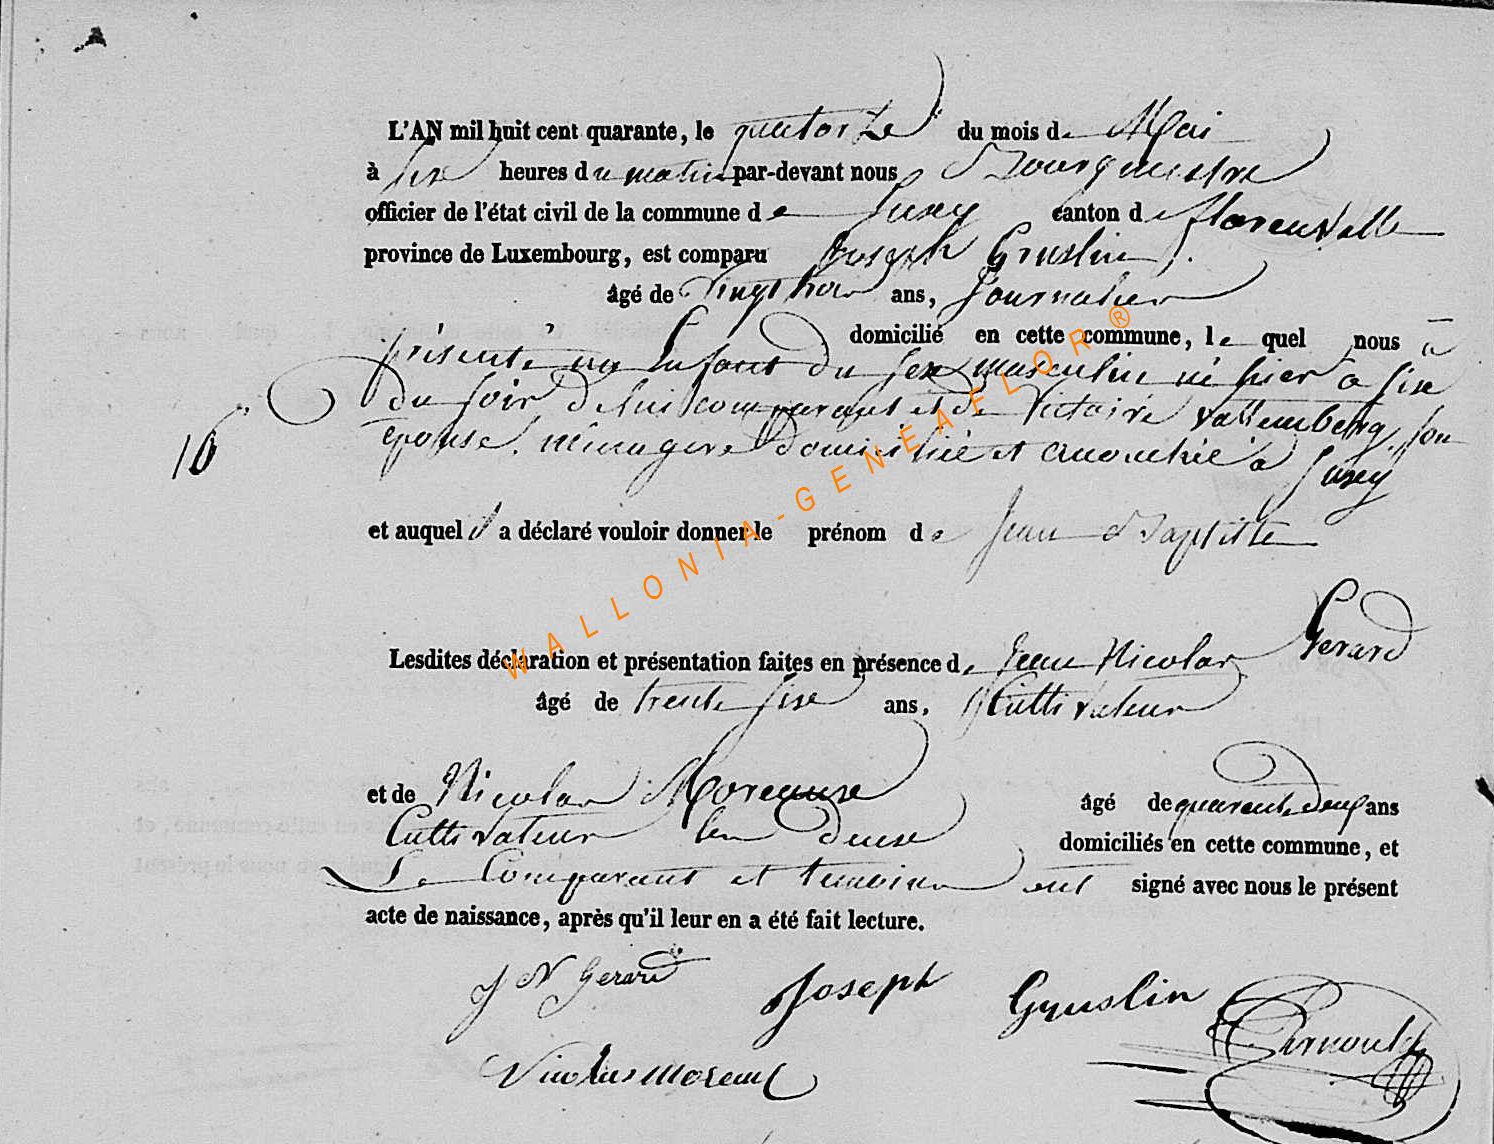 L'AN mil huit cent quarante, le quatorze du mois de Mai
à six heures du matin par-devant nous Bourgmestre
officier de l'état civil de la commune de Suxy canton de florenville
province de Luxembourg, est comparu Joseph Gruslin,
âgé de Vingt trois ans, Journalier
domicilié en cette commune, le quel nous a
présenté un Enfant du sexe masculin né hier à six
du soir de lui comparant et de Victoire Vallemberg, son
10
épouse, ménagère domiciliée et accouchée à Suxy
et auquel il a déclaré vouloir donner le prénom de Jean Baptiste
Lesdites déclaration et présentation faites en présence de Jean Nicolas Gerard
âgé de trente six ans, Cultivateur
et de Nicolas Moreaux âgé de quarente deux ans
Cultivateur domiciliés en cette commune, et
Le Comparant et temoins ont signé avec nous le présent
acte de naissance, après qu'il leur en a été fait lecture.
J N Gerard Joseph Gruslin
Nicolas moreaux
WALLONIA-GENEAFLOR ®